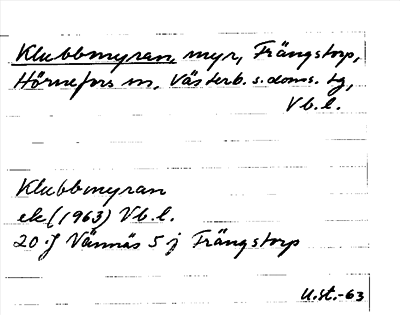 Klubbmyran, myr, Frängstorp,
Hörnefors sn, Västerb. s. doms. tg,
Vb. l.
Klubbmyran
ek (1963) Vb. l.
20 J Vännäs 5 j Frängstorp
U.st.-63